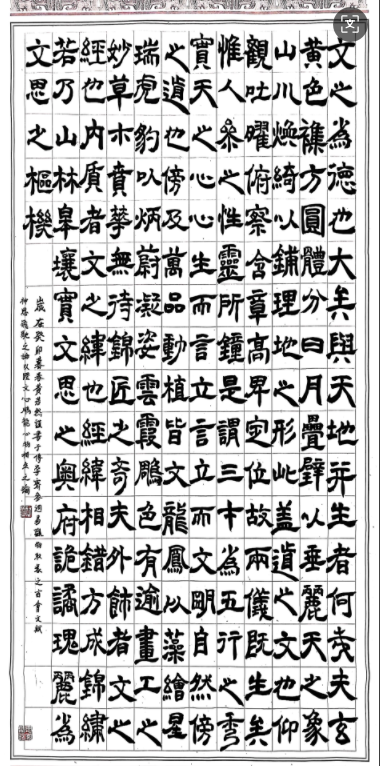 文之為德也大矣與天地并生者何哉夫玄
黃色雜方圓體分日月疊璧以垂麗天之象
山川煥綺以鋪理地之形此蓋道之文也仰
觀吐曜俯察含章高卑定位故兩儀既生矣
惟人參之性靈所鐘是謂三才為五行之秀
實天之心心生而言立言立而文明自然傍
之道也傍及萬品動植皆文龍鳳以藻繪星
瑞虎豹以炳蔚凝姿雲霞鵰色有逾畫工之
妙草木賁華無待錦匠之奇夫外飾者文之
經也內質者文之緯也經緯相錯方成錦繡
若乃山林皋壤實文思之奧府詭譎瑰麗為
文思之樞機
歲在癸卯暮春